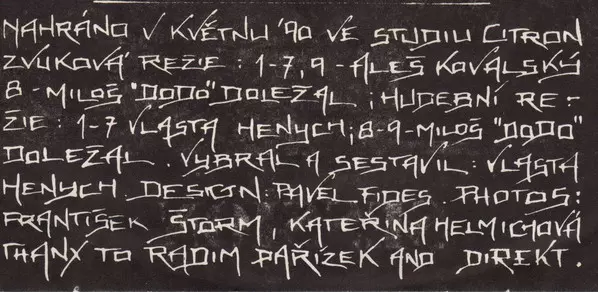 NAHRÁNO V KVĚTNU '90 VE STUDIU CITRON
ZVUKOVÁ REŽIE : 1-7, 9 - ALEŠ KOVALSKÝ
8 - MILOŠ "DODO" DOLEŽAL ; HUDEBNÍ RE-
ŽIE : 1-7 VLASTA HENYCH ; 8-9 - MILOŠ "DODO"
DOLEŽAL . VYBRAL A SESTAVIL : VLASTA
HENYCH . DESIGN : PAVEL FIDES . PHOTOS :
FRANTIŠEK ŠTORM , KATEŘINA HELMICHOVÁ
THANX TO RADIM PAŘÍZEK AND DIREKT .